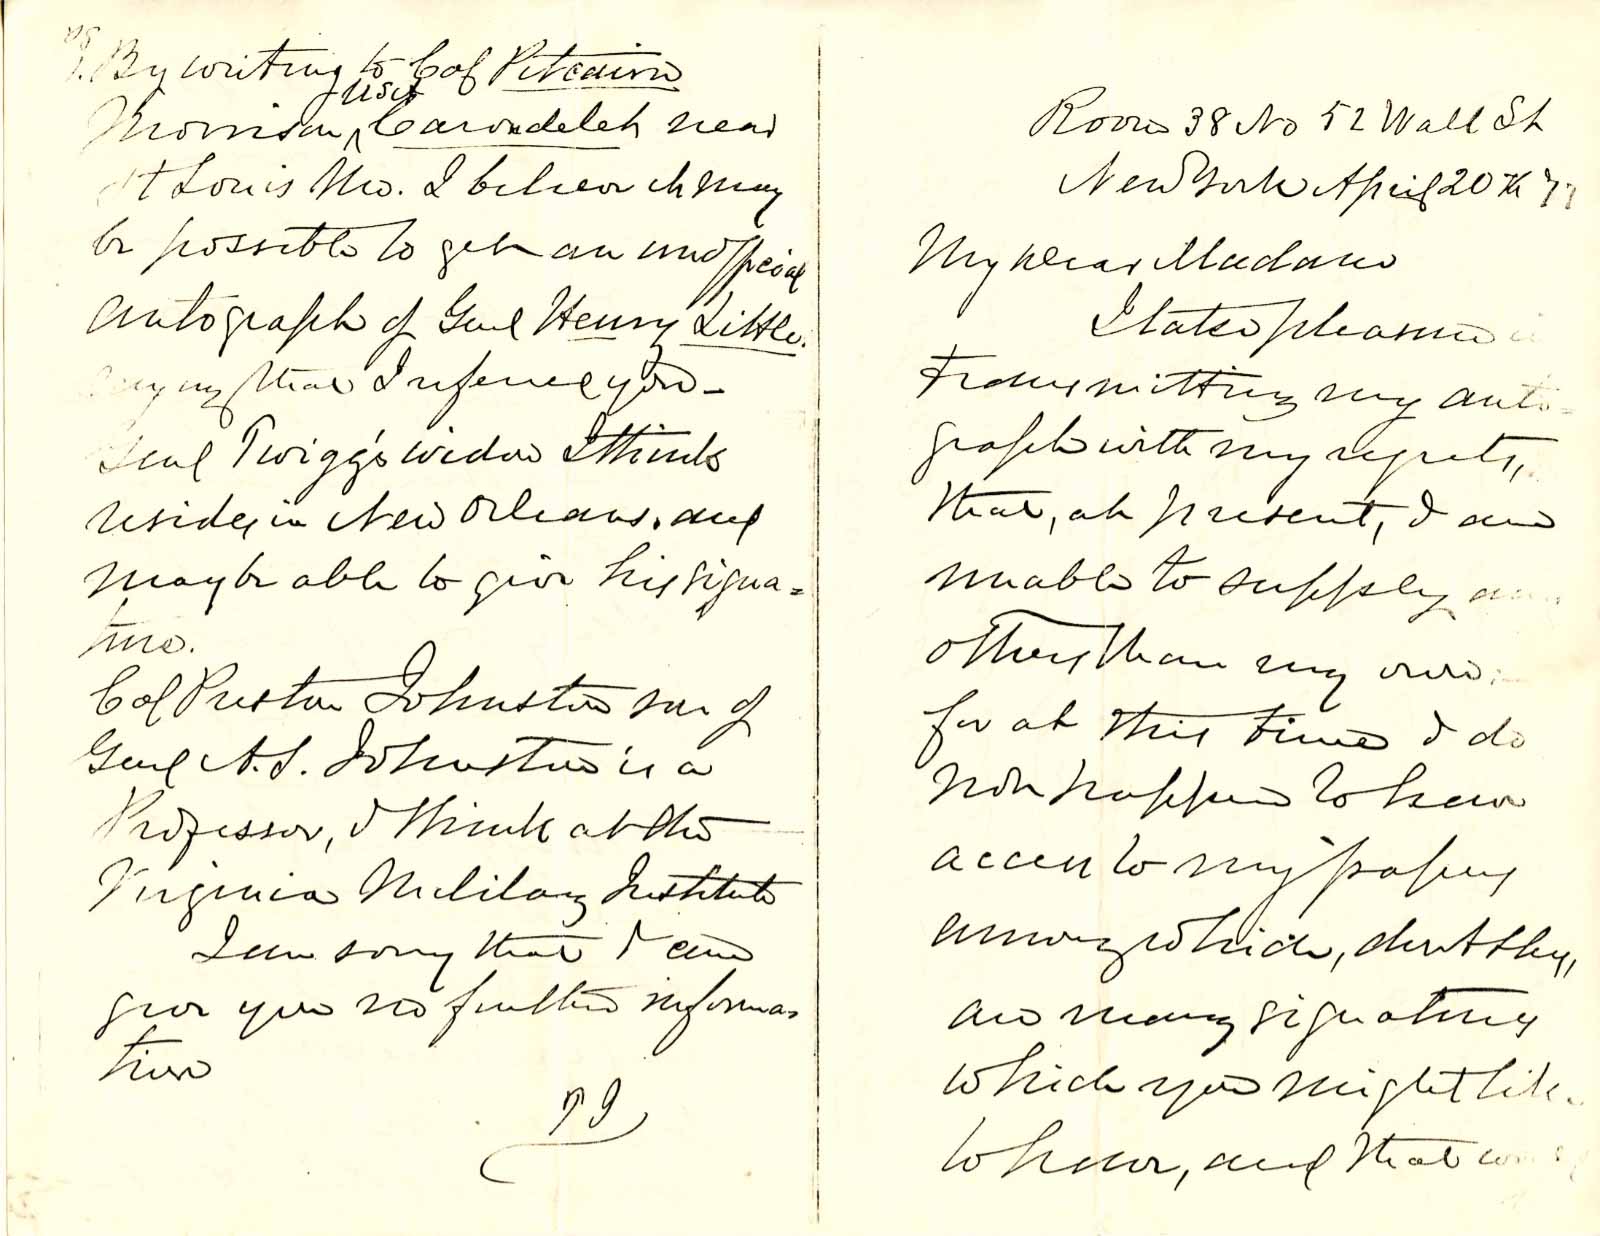 Room 38 No 52 Wall St
New York April 20th 77
My dear Madam
I take pleasure in
transmitting my auto-
graph with my regrets,
that, at present, I am
unable to supply any
others than my own:
for at this time I do
not happen to have
access to my papers
among which, doubtless,
are many signatures
which you might like
to have, and that would
PS
By writing to Col Pitcairn
Morrison, USA Carondelet near
St Louis Mo. I believe it may
be possible to get an unofficial
autograph of Genl Henry Little.
saying that I referred you—
Genl Twigg's widow I think
resides in New Orleans, and
may be able to give his signa=
ture.
Col Preston Johnston son of
Genl A. S. Johnston is a
Professor, I think at the
Virginia Military Institute
I am sorry that I can
give you no further informa=
tion